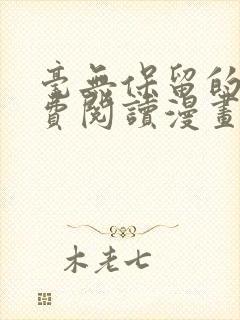 毫無保留的
費閱讀漫畫
木老七